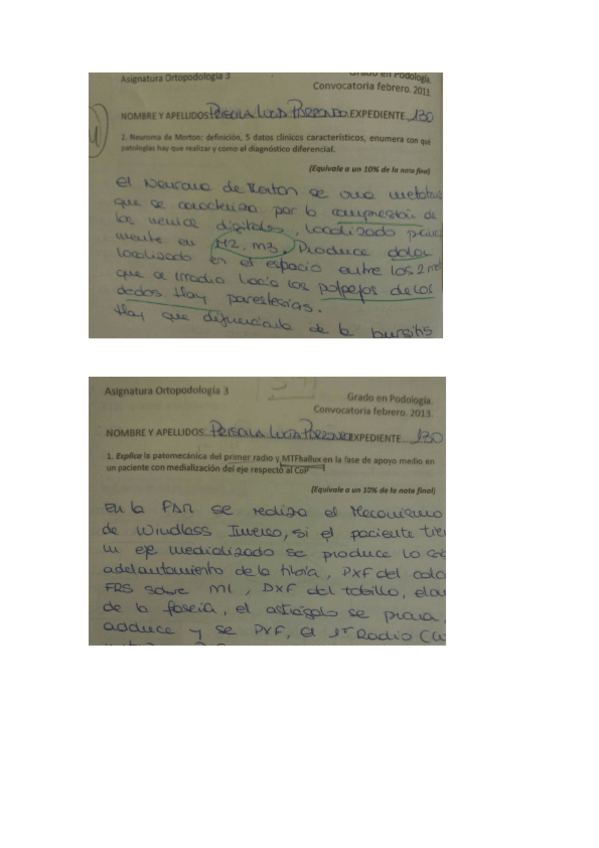 Asignatura Ortopodología 3
Grado en Podología.
Convocatoria febrero. 2013.
NOMBRE Y APELLIDOS EXPEDIENTE 130
2. Neuroma de Morton; definición, 5 datos clínicos característicos, enumera con qué
patologías hay que realizar y como el diagnóstico diferencial.
(Equivale a un 10% de la nota final)
El Neuroma de Morton se una metatar
que se caracteriza por la compresión de
los nervios digitales, localizado princi
mente en M2, M3. Produce dolor
localizado en el espacio entre los 2 met
que se irradia hacia los pulpejos de los
dedos. Hay parestesias.
Hay que diferenciarlo de la bursitis
Asignatura Ortopodología 3
Grado en Podología.
Convocatoria febrero. 2013.
NOMBRE Y APELLIDOS EXPEDIENTE 130
1. Explica la patomecánica del primer radio y MTFhallux en la fase de apoyo medio en
un paciente con medialización del eje respecto al CoP
(Equivale a un 10% de la nota final)
En la se realiza el Mecanismo
de Windlass Inverso, si el paciente tien
un eje medializado se produce
adelantamiento de la tibia, PXF del
FRS sobre M1, DXF del tobillo,
de la fascia, el astrágalo se prona,
adduce y se PXF, el 1er Radio